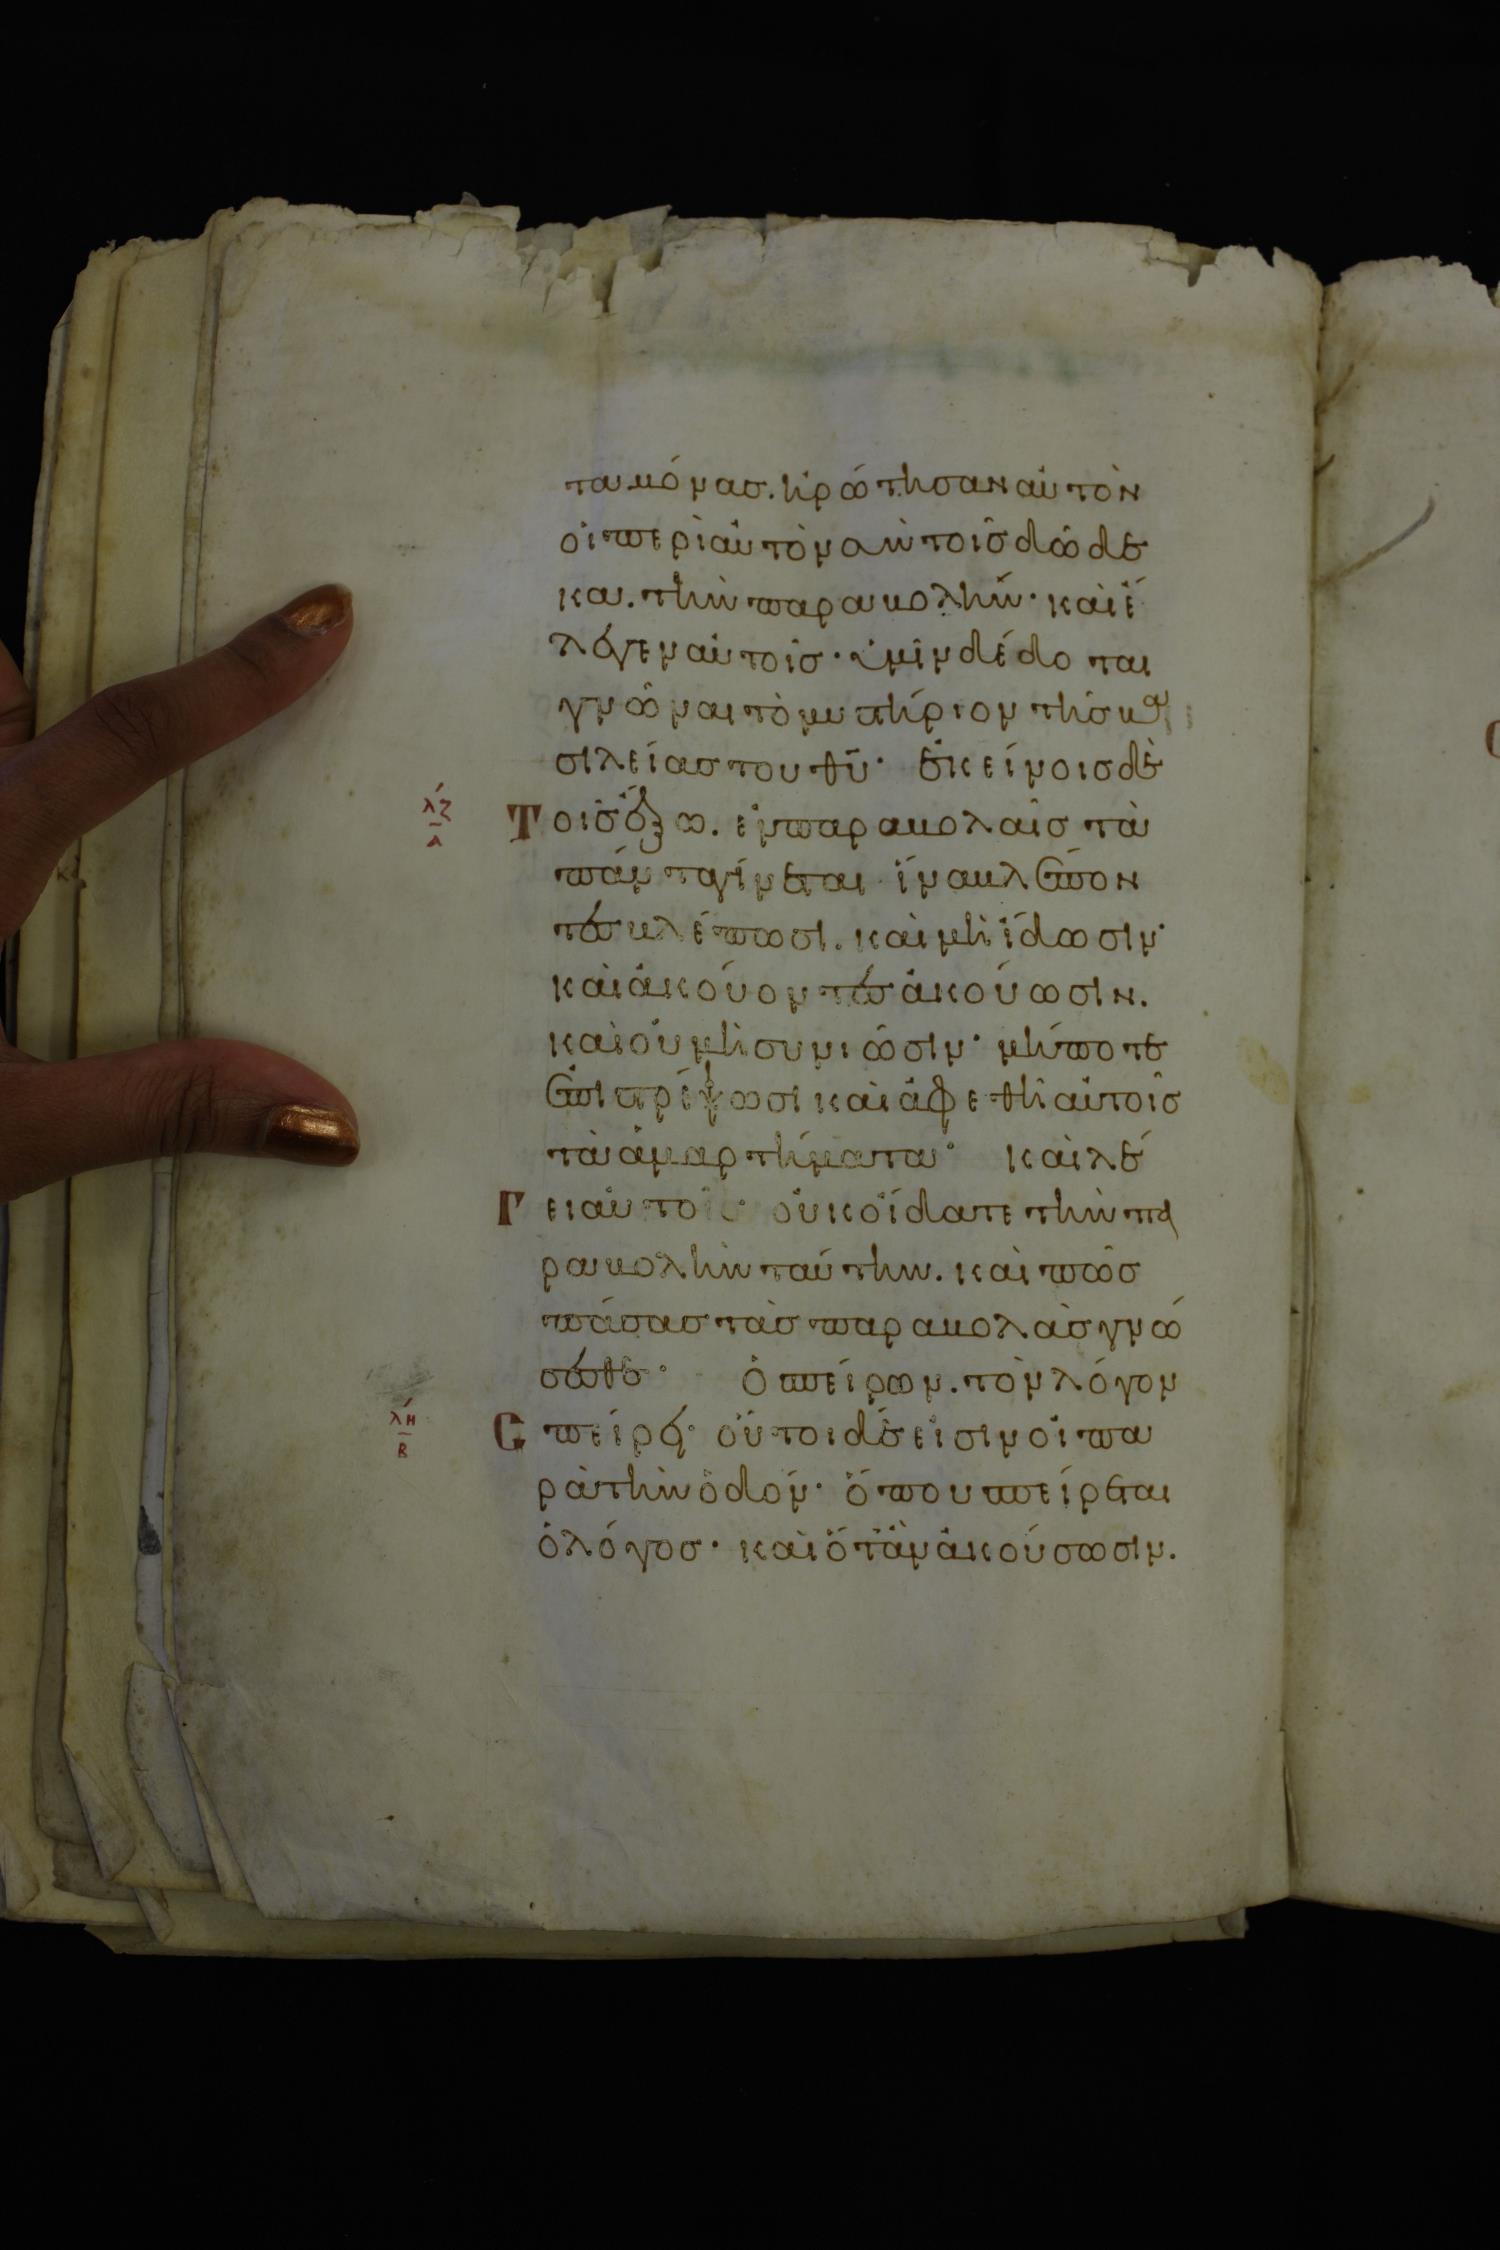 ταμόνας. ἠρώτησαν αὐτὸν
οἱ περὶ αὐτὸν σὺν τοῖς δώδε
κα. τὴν παραβολήν· καὶ ἔ
λεγεν αὐτοῖς· ὑμῖν δέδοται
γνῶναι τὸ μυστήριον τῆς βα
σιλείας του θυ· ἐκείνοις δὲ
λζ
α
Τοῖς ἔξω. ἐν παραβολαῖς τὰ
πάντα γίνεται· ἵνα βλέπον
τες βλέπωσι. καὶ μὴ ἴδωσιν·
καὶ ἀκούοντες ἀκούωσιν.
καὶ οὐ μὴ συνιῶσιν· μήποτε
ἐπιστρέψωσι καὶ ἀφεθῆ αὐτοῖς
τὰ ἁμαρτήματα· καὶ λέ
Γει αὐτοῖς· οὐκ οἴδατε τὴν πα
ραβολὴν ταύτην. καὶ πῶς
πάσας τὰς παραβολὰς γνώ
σεσθε· ὁ σπείρων. τὸν λόγον
λη
β
Σπείρει· οὗτοι δέ εἰσιν οἱ πα
ρὰ τὴν ὁδόν· ὅπου σπείρεται
ὁ λόγος· καὶ ὅταν ἀκούσωσιν.